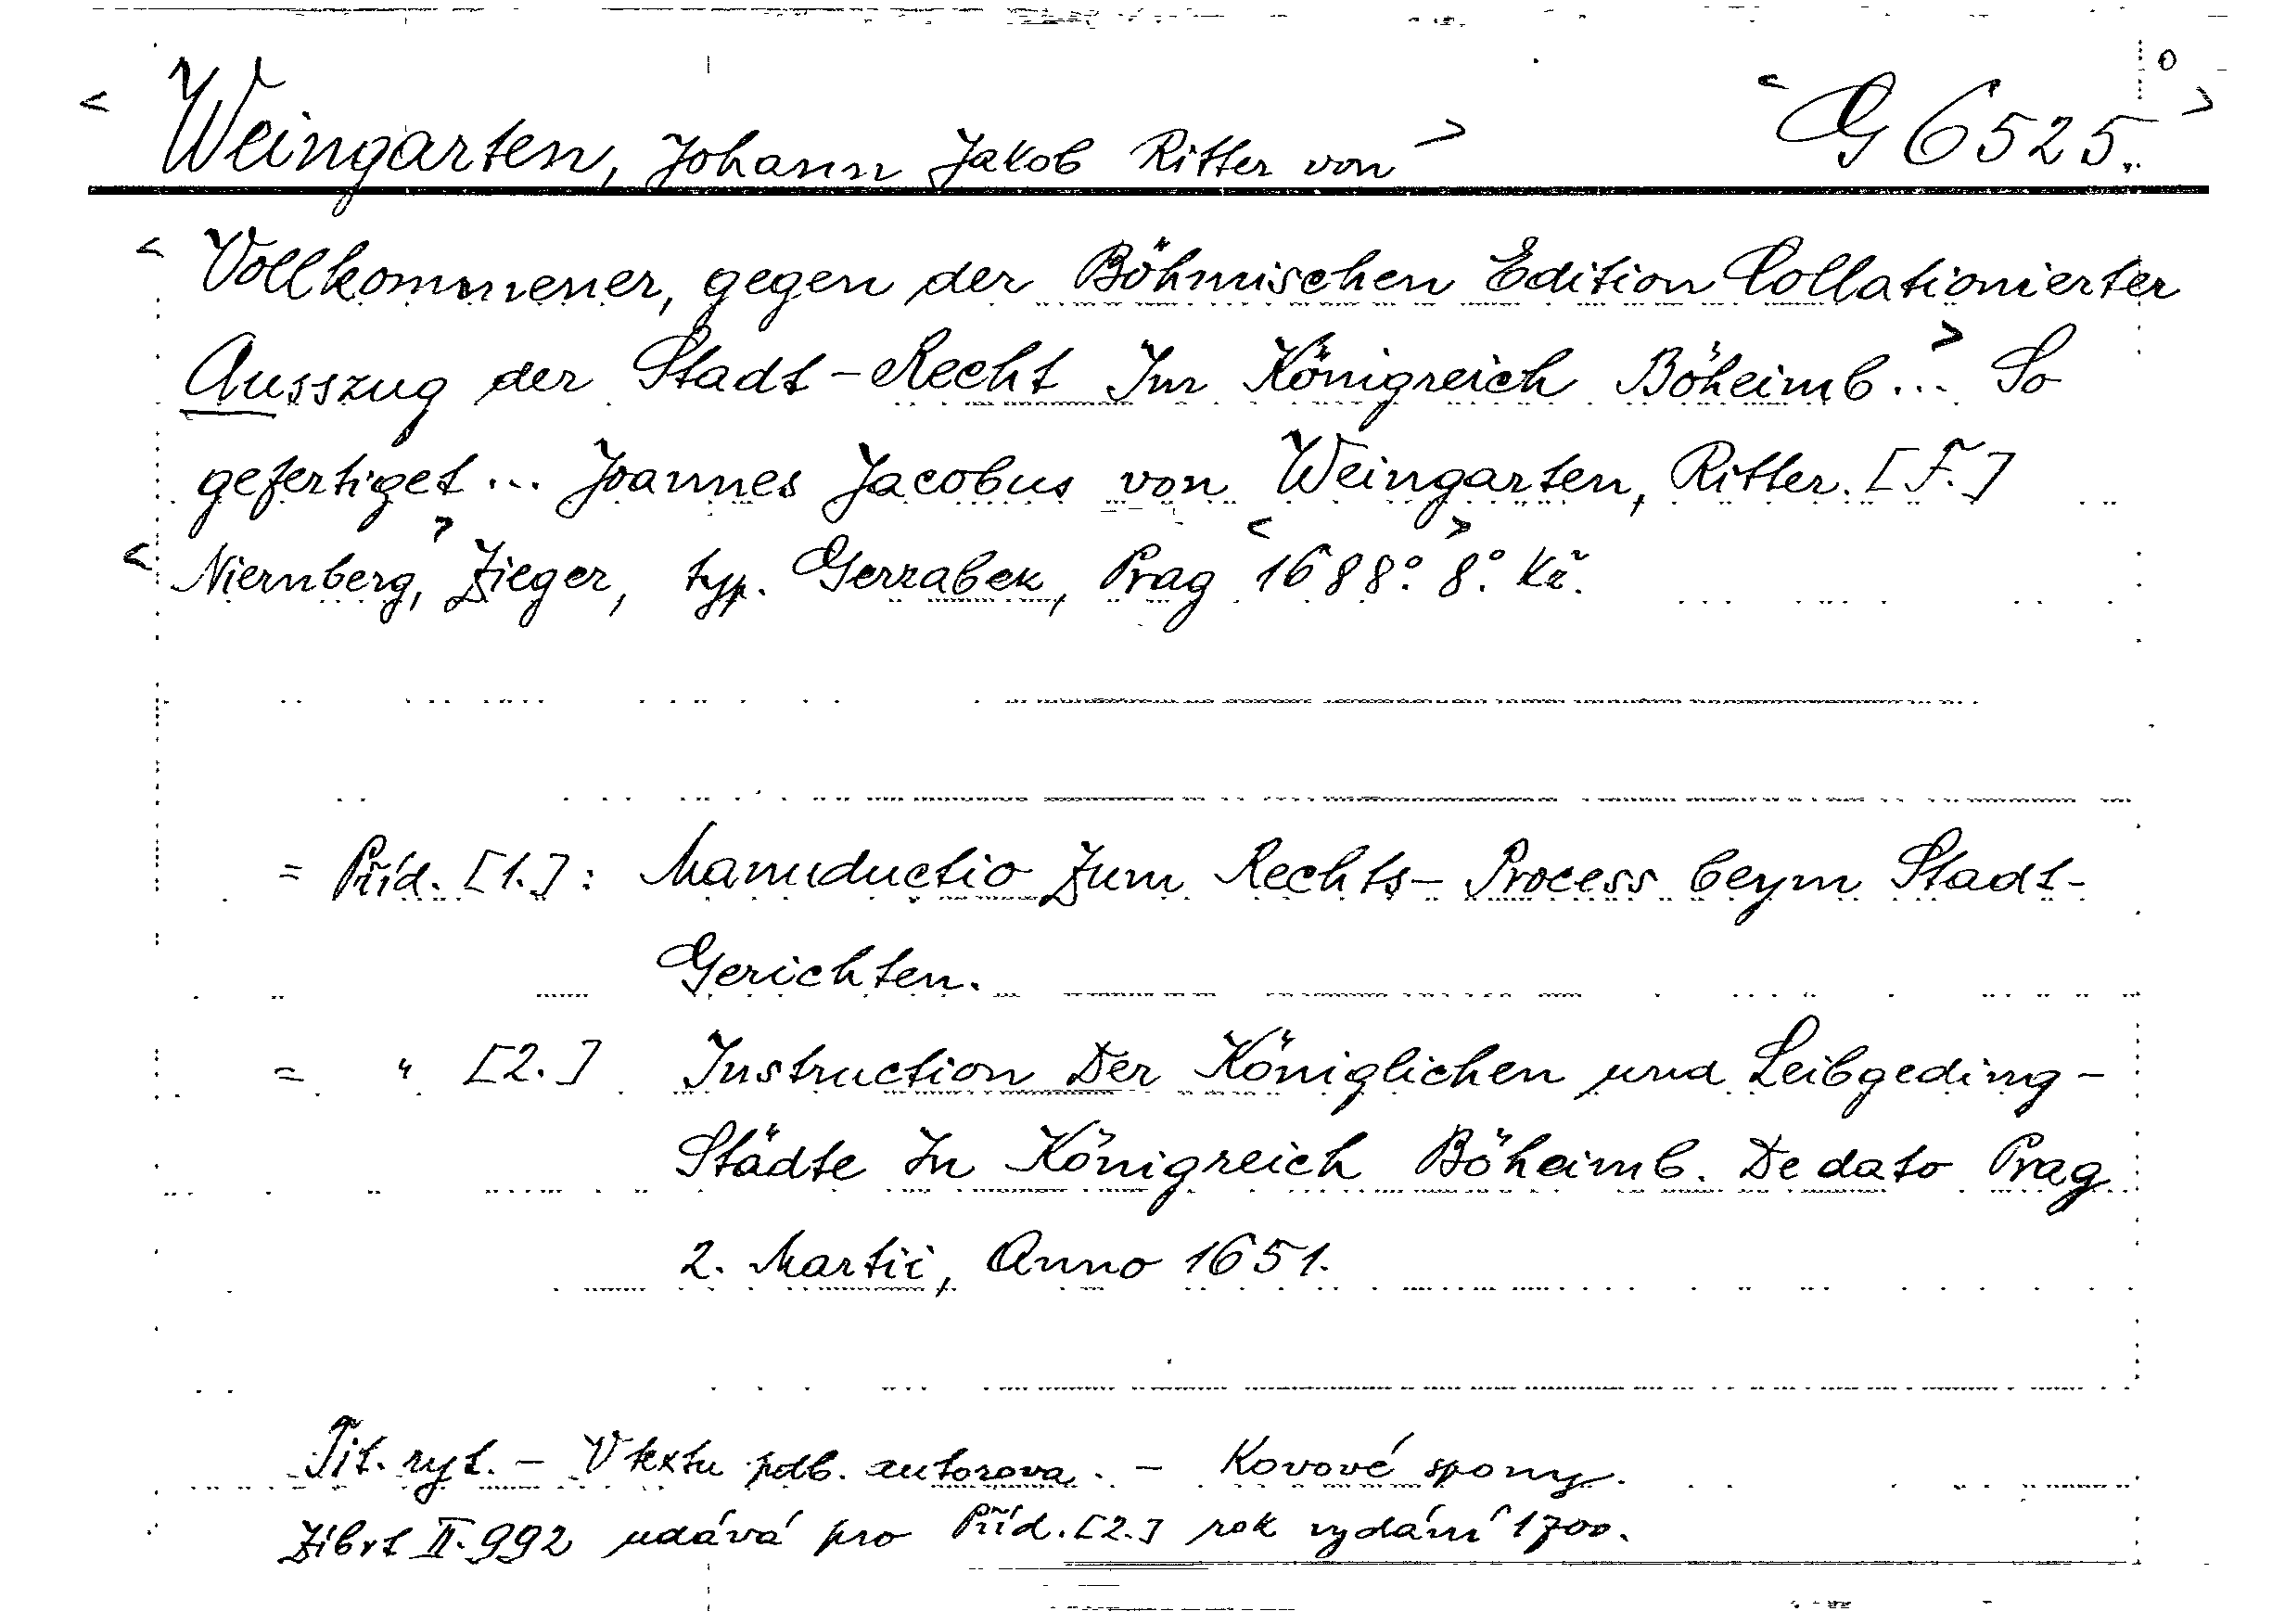 < Weingarten, Johann Jakob Ritter von > < G 6525. >
< Vollkommener, gegen der Böhmischen Edition Collationierter
Ausszug der Stadt-Recht Im Königreich Böheimb...> So
gefertiget ... Joannes Jacobus von Weingarten, Ritter. [F.]
< Niernberg,> Zieger, typ. Gerzabek, Prag <1688.> 8°. Kž.
= Příd. [1.]: Manuductio Zum Rechts-Process beym Stadt-
Gerichten.
= " [2.] Instruction Der Königlichen und Leibgeding-
Städte In Königreich Böheimb. De dato Prag
2. Martii, Anno 1651.
Tit. ryt. - V textu pdb. autorova. - Kovové spony.
Zibrt II. 992 udává pro Příd. [2.] rok vydání 1700.